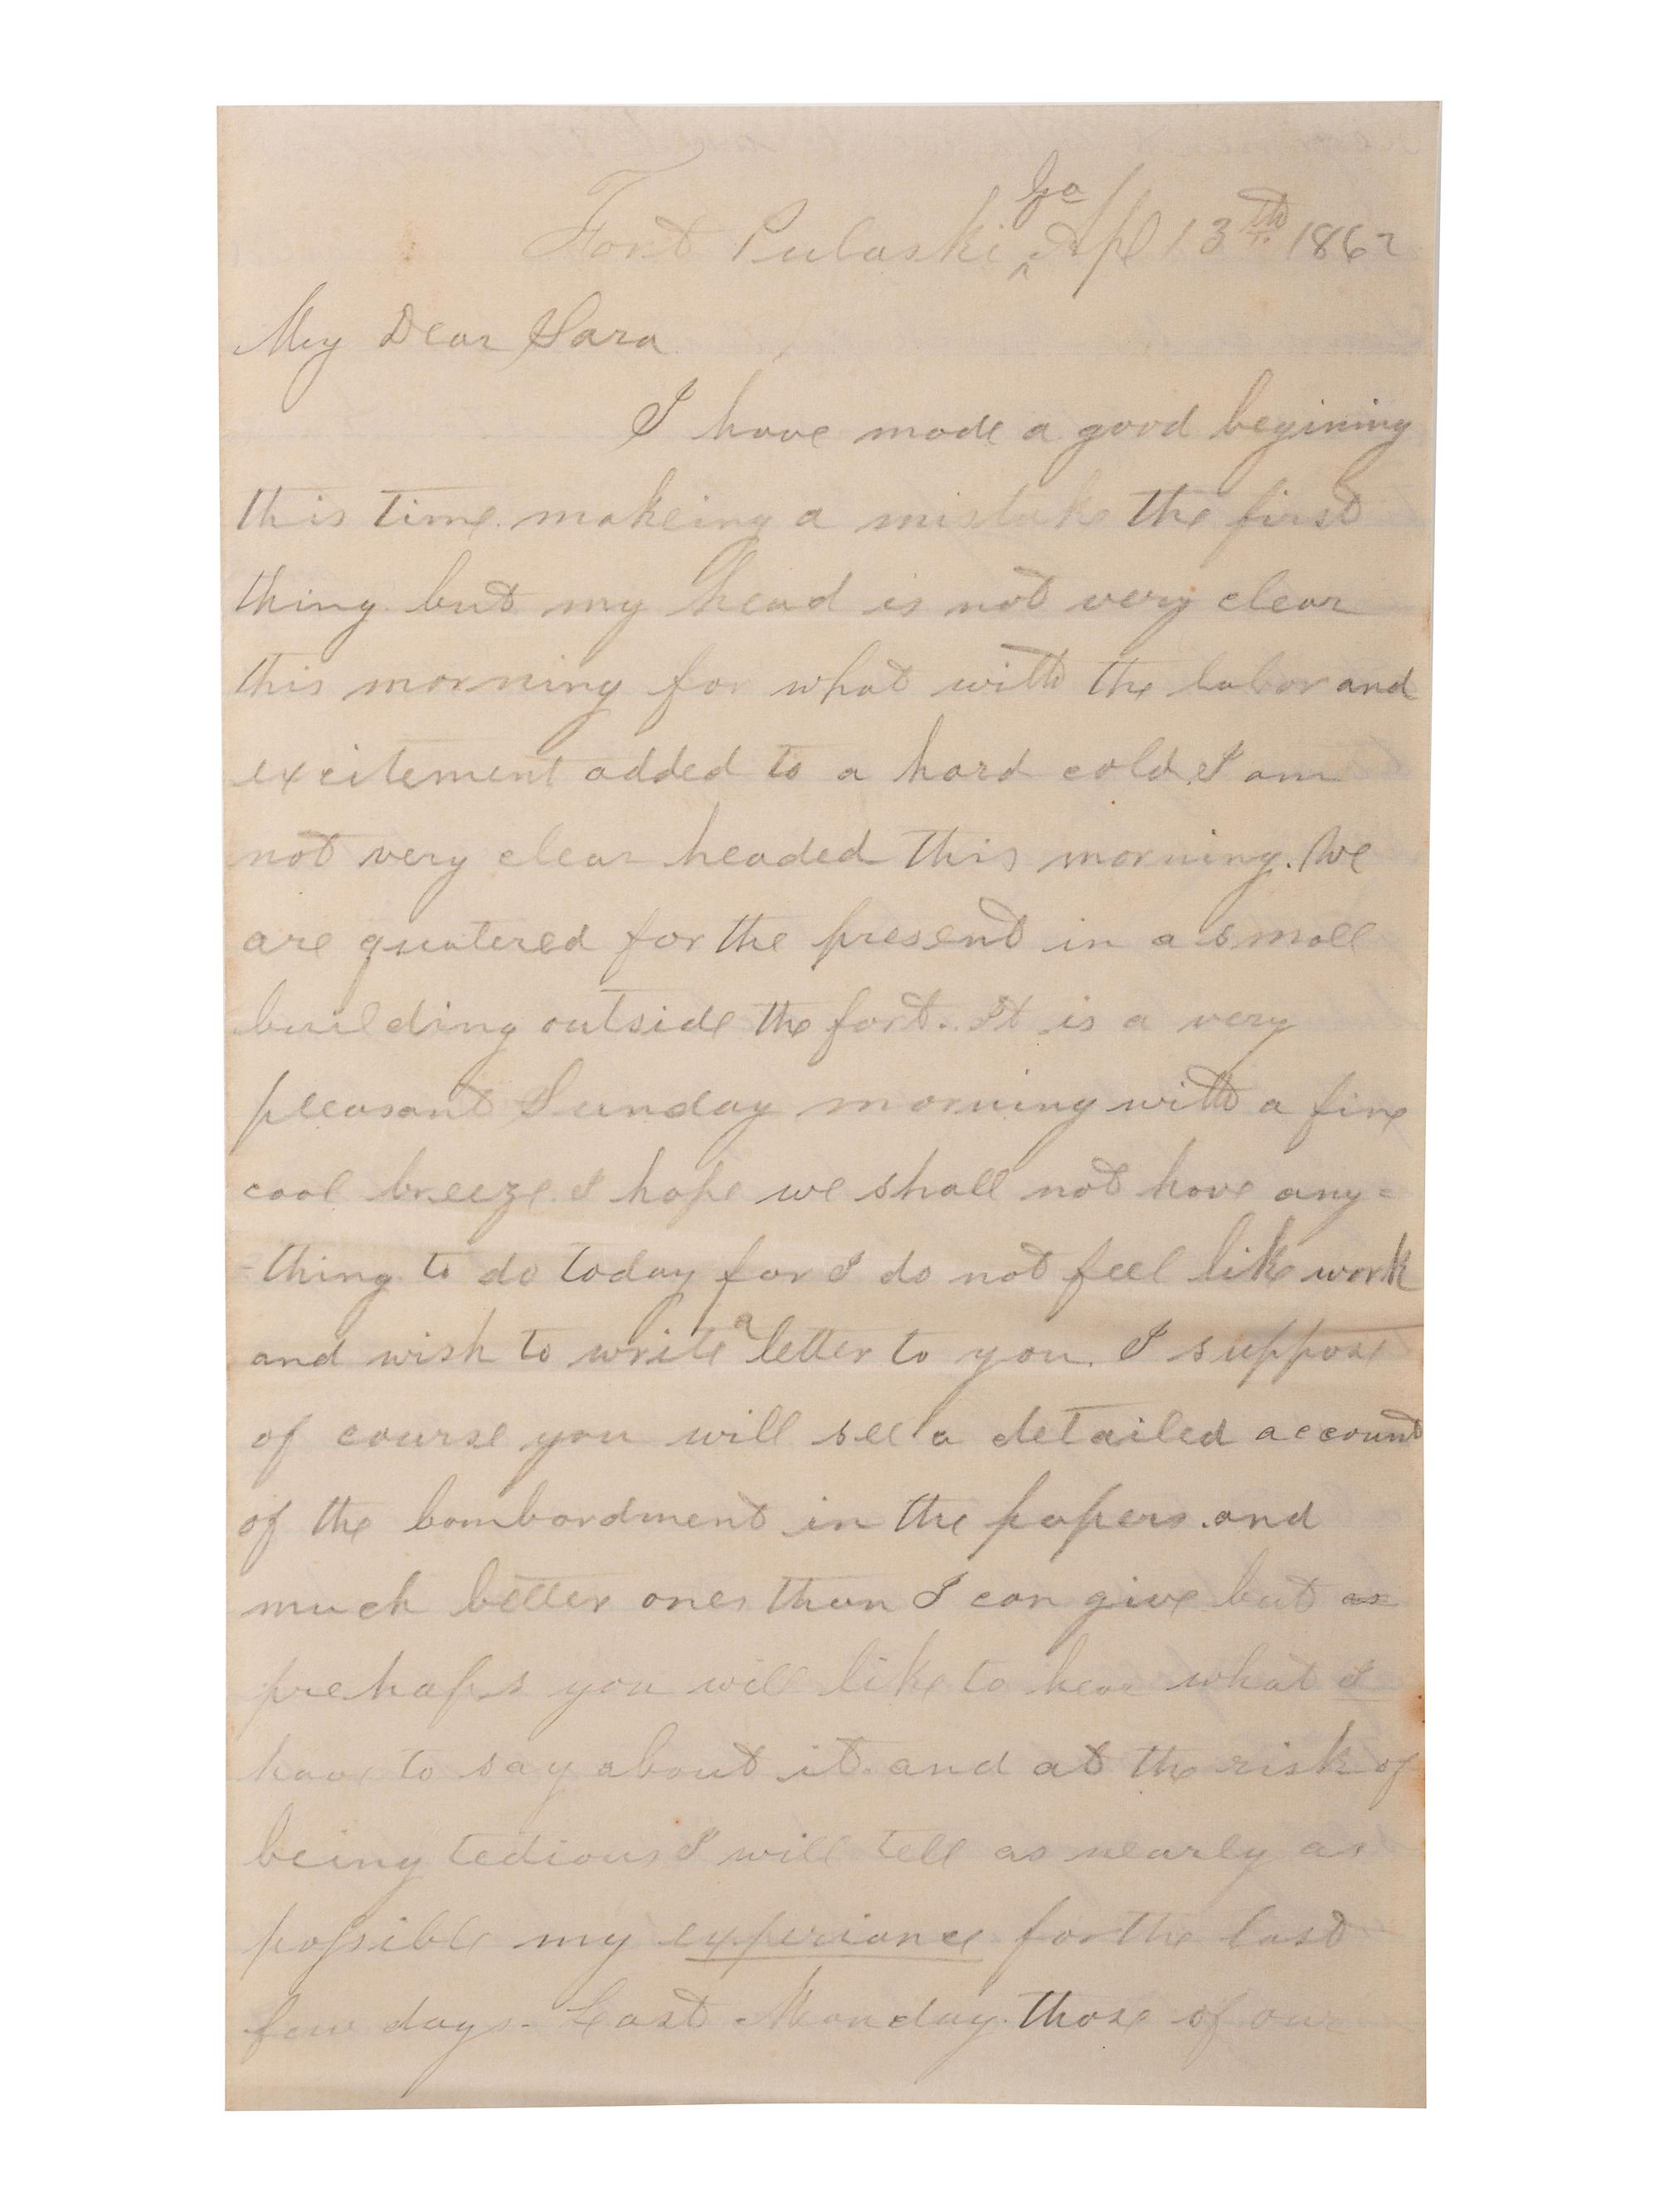 Fort Pulaski Ga Apl 13th 1862
My Dear Sara
I have made a good begining
this time. makeing a mistake the first
thing. but my head is not very clear
this morning for what with the labor and
excitement added to a hard cold. I am
not very clear headed this morning. We
are quatered for the present in a small
building outside the fort. It is a very
pleasant Sunday morning with a fine
cool breeze. I hope we shall not have any=
=thing to do today for I do not feel like work
and wish to write a letter to you. I suppose
of course you will see a detailed account
of the bombardment in the papers. and
much better ones than I can give but as
prehaps you will like to hear what I
have to say about it. and at the risk of
being tedious I will tell as nearly as
possible my experiance for the last
few days - Last Monday. those of our